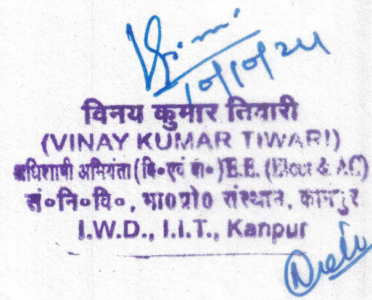 विनय कुमार तिवारी
(VINAY KUMAR TIWARI)
अधिशाषी अभियंता (वि०एवं वा०) E.E. (Elect & AC)
सं०नि०वि०, भा०प्रौ० संस्थान, कानपुर
I.W.D., I.I.T., Kanpur